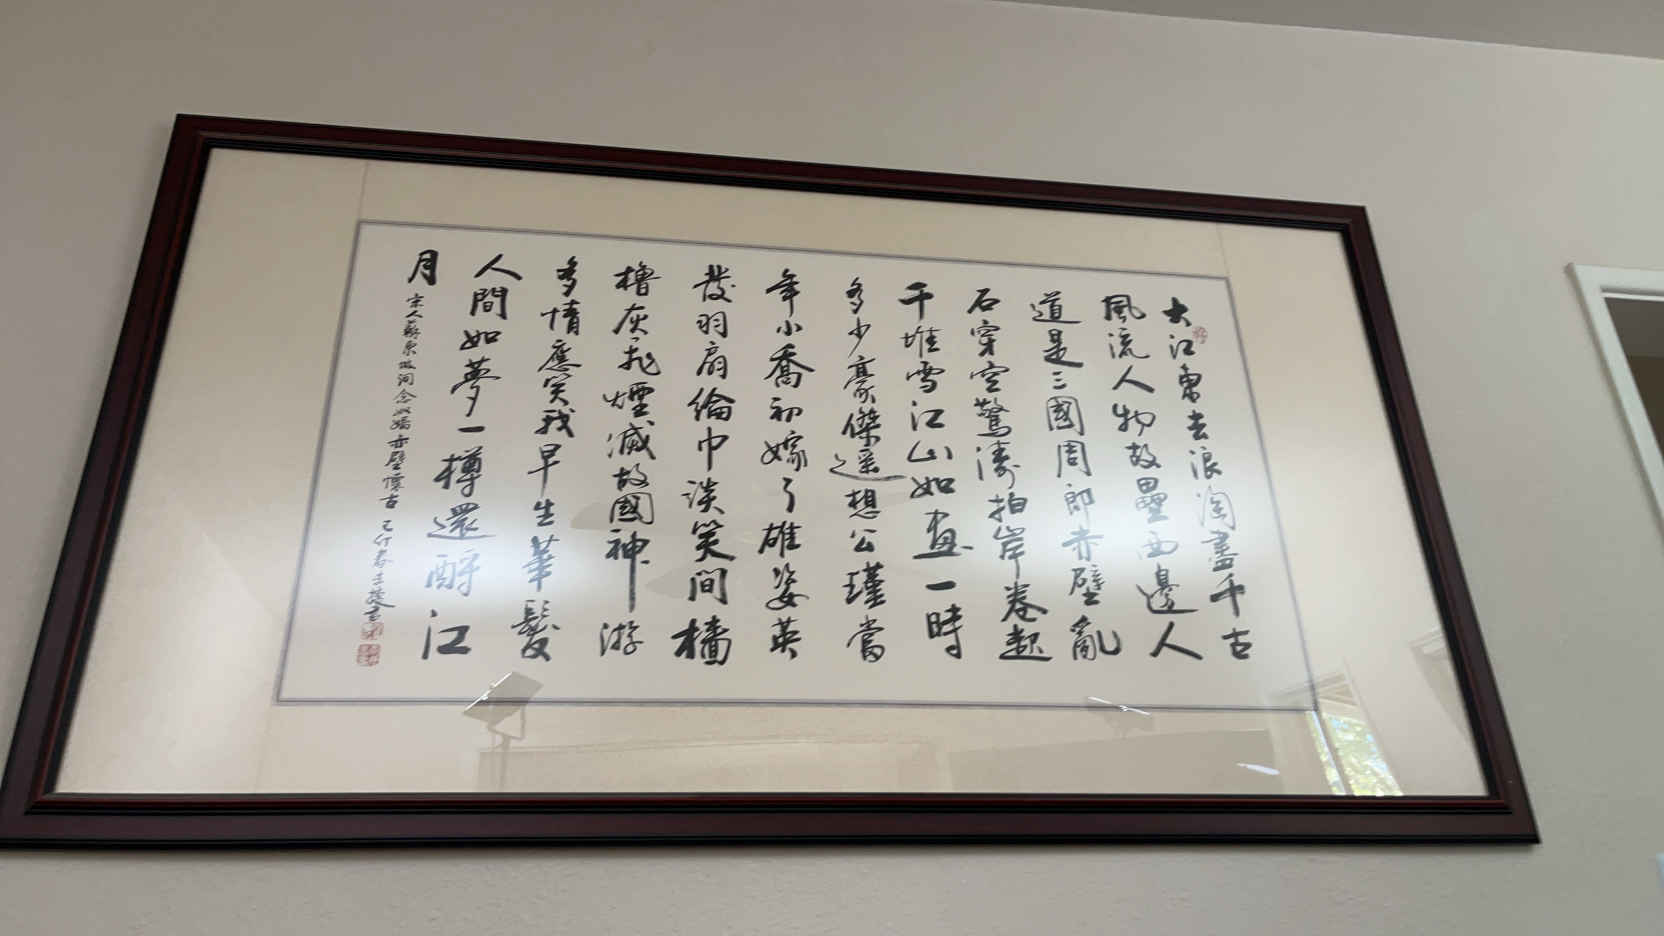 大江東去浪淘盡千古
風流人物故壘西邊人
道是三國周郎赤壁亂
石穿空驚濤拍岸卷起
千堆雪江山如畫一時
多少豪傑遥想公瑾當
年小喬初嫁了雄姿英
發羽扇綸巾談笑間檣
櫓灰飛煙滅故國神游
多情應笑我早生華髮
人間如夢一樽還酹江
月
宋人蘇東坡詞念奴嬌赤壁懷古 己卯春書